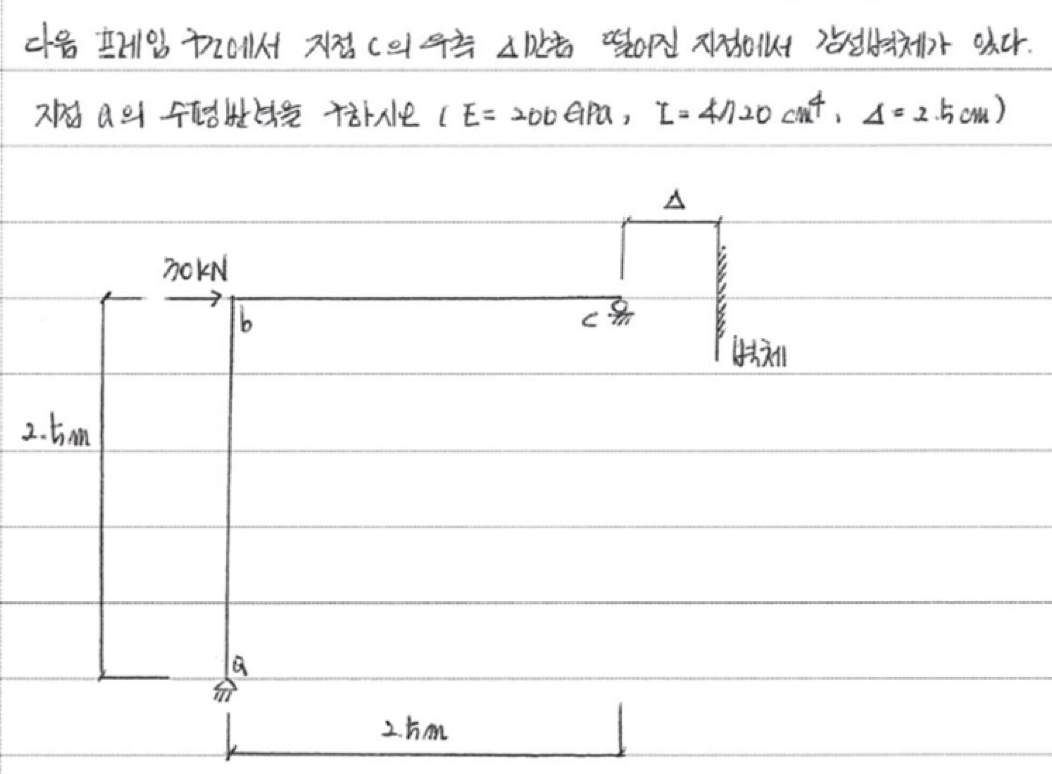 다음 프레임 구조에서 지점 C의 우측 Δ만큼 떨어진 지점에서 강성벽체가 있다.
지점 a의 수평반력을 구하시오 ( E = 200 GPa, I = 4720 cm⁴, Δ = 2.5 cm )
Δ
70kN
b
C
벽체
2.5m
a
2.5m